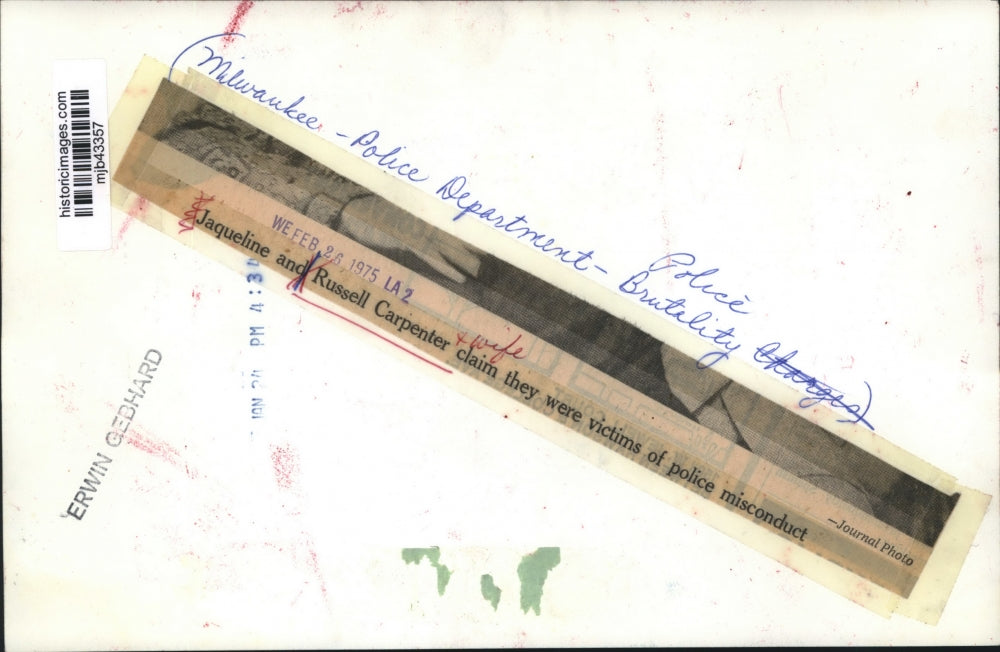 historicimages.com
mjb43357
(Milwaukee - Police Department - Police
Brutality Charges)
WE FEB 26 1975 LA 2
Jaqueline and Russell Carpenter claim they were victims of police misconduct
& wife
—Journal Photo
PM 4:3
ERWIN GEBHARD